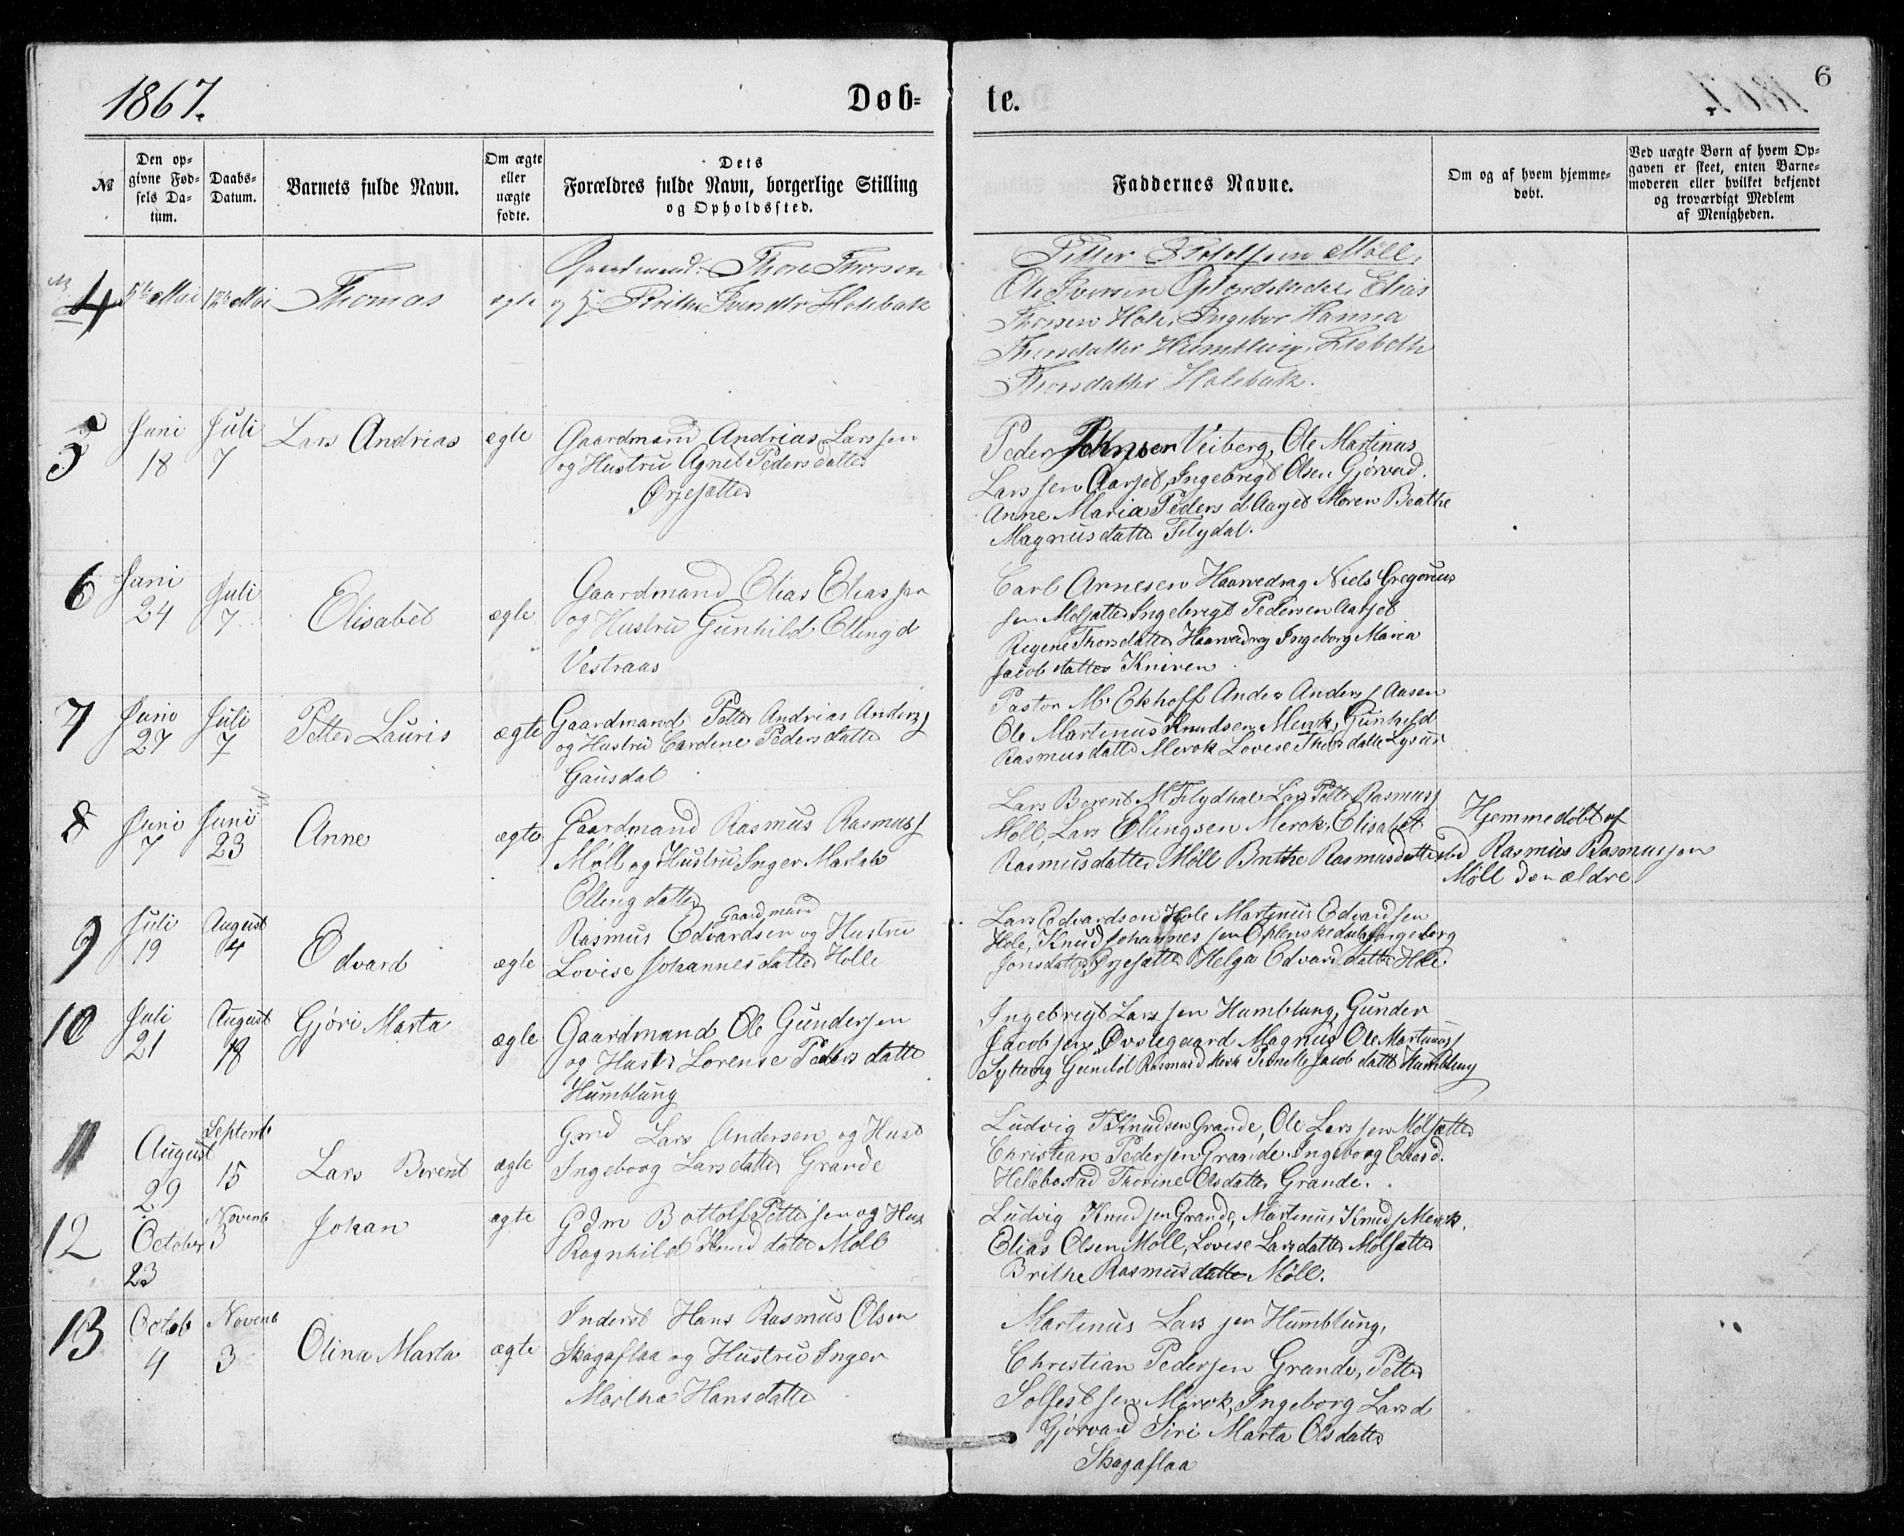 1867.
Døb-
te.
6
№
Den op-
givne Fød-
sels Da-
tum.
Daabs-
Datum.
Barnets fulde Navn.
Om ægte
eller
uægte
fødte.
Dets
Forældres fulde Navn, borgerlige Stilling
og Opholdssted.
Faddernes Navne.
Om og af hvem hjemme-
døbt.
Ved uægte Børn af hvem Op-
gaven er skeet, enten Barne-
moderen eller hvilket bekjendt
og troværdigt Medlem
af Menigheden.
4
5te Mai
12te Mai
Thomas
ægte
Gaardmand Thore Thorsen
og H. Brithe Iversdtr Holebak
Møll,
Ole Iversen Elias
Thorsen Hole, Ingebor Hanna
Thorsdatter Humblung, Lisbeth
Thorsdatter Holebak.
5
Juni
18
Juli
7
Lars Andrias
ægte
Gaardmand Andrias Larssen
og Hustru Agnet Peders datter
Ørjesætter
Peder Johnsen Viiberg, Ole Martinus
Larssen Aarset, Ingebrigt Olsen Gjørvad.
Anne Maria Peders d Aarset Maren Beathe
Magnusdatter Flydal.
6
Juni
24
Juli
7
Elisabet
ægte
Gaardmand Elias Eliassen
og Hustru Gunhild Elling d
Vestraas
Carl Arnesen Haarvedrag Niels Gregorius
sen Molsætter Ingebrigt Pedersen Aarset
Regene Thorsdatter Haarvedrag Ingeborg Maria
Jacobsdatter Kniven
7
Juni
27
Juli
7
Petter Lauris
ægte
Gaardmand Petter Andrias Anders s
og Hustru Cardine Pedersdatter
Gausdal
Pastor M. Ekhoff Anders Anders s Aasen
Ole Martinus Knudsen Merok, Gunhild
Rasmusdatter Merok Lovise Thorsdatter
8
Juni
7
Juni
23
Anne
ægte
Gaardmand Rasmus Rasmus s
Møll og Hustru Inger Marta
Ellingdatter
Lars Berent M Flydhal Lars Petter Rasmus s
Møll, Lars Ellingsen Merok, Elisabet
Rasmusdatter Møll Brithe Rasmusdatter
Hjemmedøbt af
Rasmus Rasmussen
Møll den ældre
9
Juli
19
August
4
Edvard
ægte
Gaardmand
Rasmus Edvardsen og Hustru
Lovise Johannesdatter Holle
Lars Edvardsen Hole Martinus Edvardsen
Hole, Knud Johannessen Ingeborg
Jonsdatter Ørjesætter Helga Edvardsdatter Hole.
10
Juli
21
August
18
Gjøri Marta
ægte
Gaardmand Ole Gundersen
og Hustr Lorense Pedersdatter
Humblung
Ingebrigt Larssen Humblung, Gunder
Jacobsen Øvstegaard Magnus Ole Martinus s
Sylteng Gunild Rasmusd Merk Pernelle Jacobsdatt Humblung
11
August
29
Septemb
15
Lars Berent
ægte
Gmd Lars Andersen og Hust
Ingeborg Larsdatter Grande
Ludvig Knudsen Grande, Ole Larssen Molsætter
Christian Pedersen Grande Ingeborg Edvard.
Hellebostad Thorine Olsdatter Grande.
12
October
23
Novemb
3
Johan
ægte
Gdm Bottolf Pettersen og Hus
Ragnhild Knudsdatter Møll
Ludvig Knudsen Grande, Martinus Knud s Merok.
Elias Olsen Møll, Lovise Larsdatter Molsætter
Brithe Rasmusdatter Møll.
13
Octob
4
Novemb
3
Olina Marta
ægte
Inderst Hans Rasmus Olsen
Skagaflaa og Hustru Inger
Martha Hansdatter
Martinus Larssen Humblung,
Christian Pedersen Grande, Petter
Solfestsen Merok, Ingeborg Lars d
Gjørvad Siri Marta Olsdatter
Skagaflaa